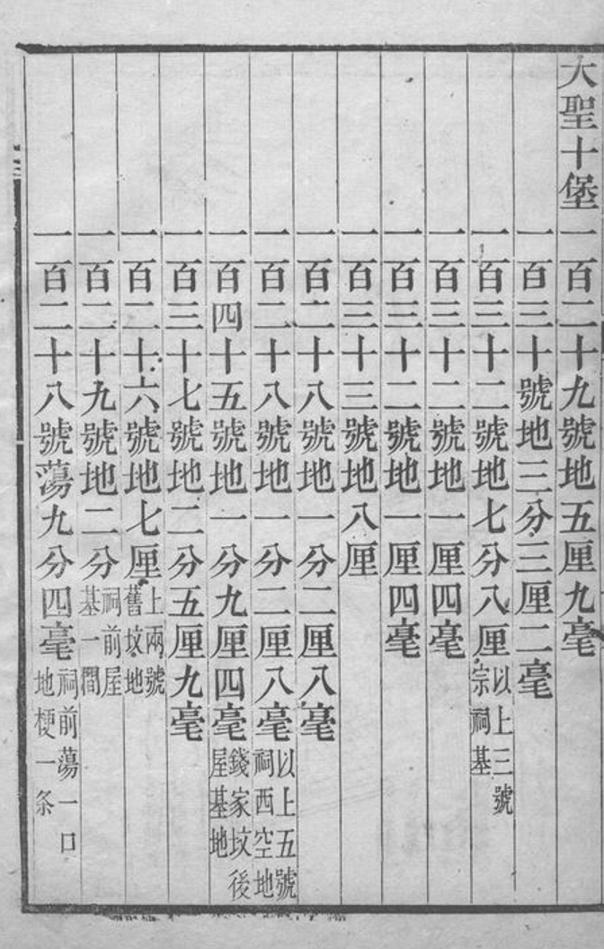 大聖十堡一百二十九號地五厘九毫
一百三十號地三分三厘二毫
一百三十二號地七分八厘以上三號宗祠基
一百三十二號地一厘四毫
一百三十二號地一厘四毫
一百三十三號地八厘
一百二十八號地一分二厘八毫
一百二十八號地一分二厘八毫以上五號祠西空地
一百四十五號地一分九厘四毫錢家坟後屋基地
一百三十七號地二分五厘九毫
一百二十六號地七厘上兩號舊坟地
一百二十九號地二分祠前屋基一間
一百二十八號蕩九分四毫祠前蕩一口地梗一条